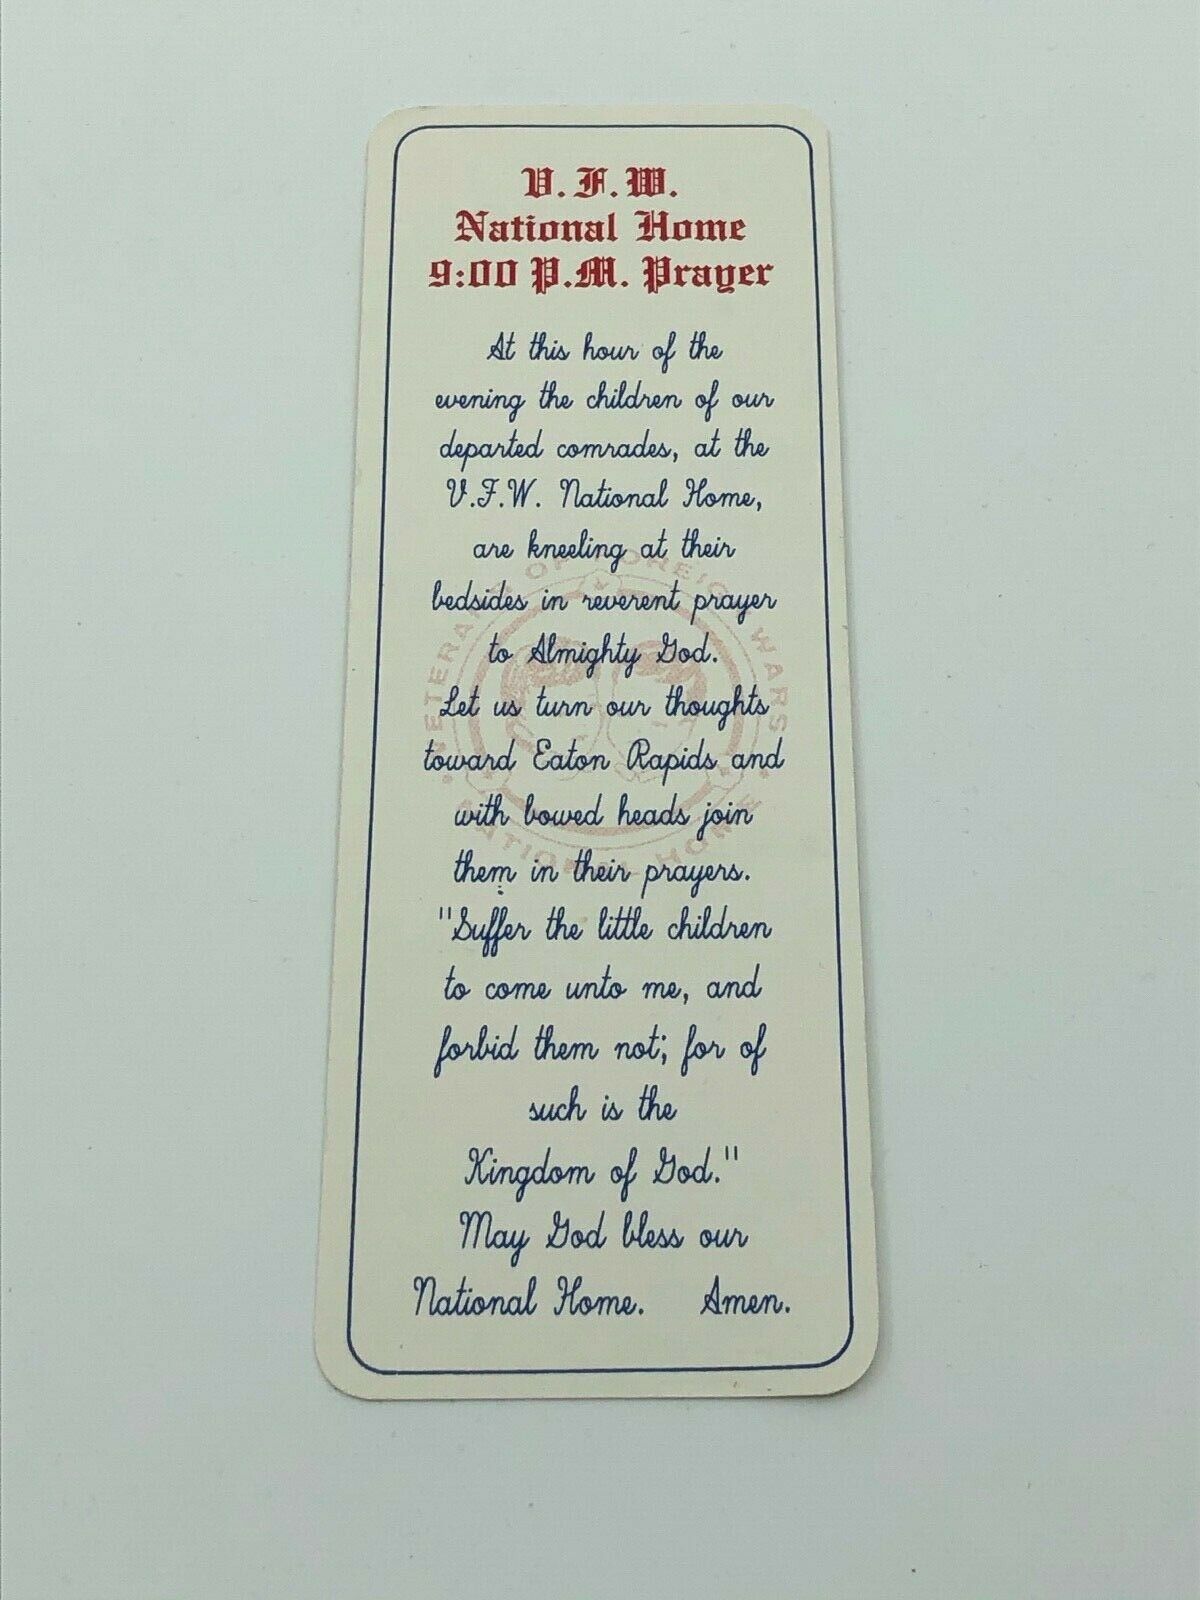 V. F. W.
National Home
9:00 P.M. Prayer
At this hour of the
evening the children of our
departed comrades, at the
V.F.W. National Home,
are kneeling at their
bedsides in reverent prayer
to Almighty God.
Let us turn our thoughts
toward Eaton Rapids and
with bowed heads join
them in their prayers.
"Suffer the little children
to come unto me, and
forbid them not; for of
such is the
Kingdom of God."
May God bless our
National Home. Amen.
VETERANS OF FOREIGN WARS
NATIONAL HOME